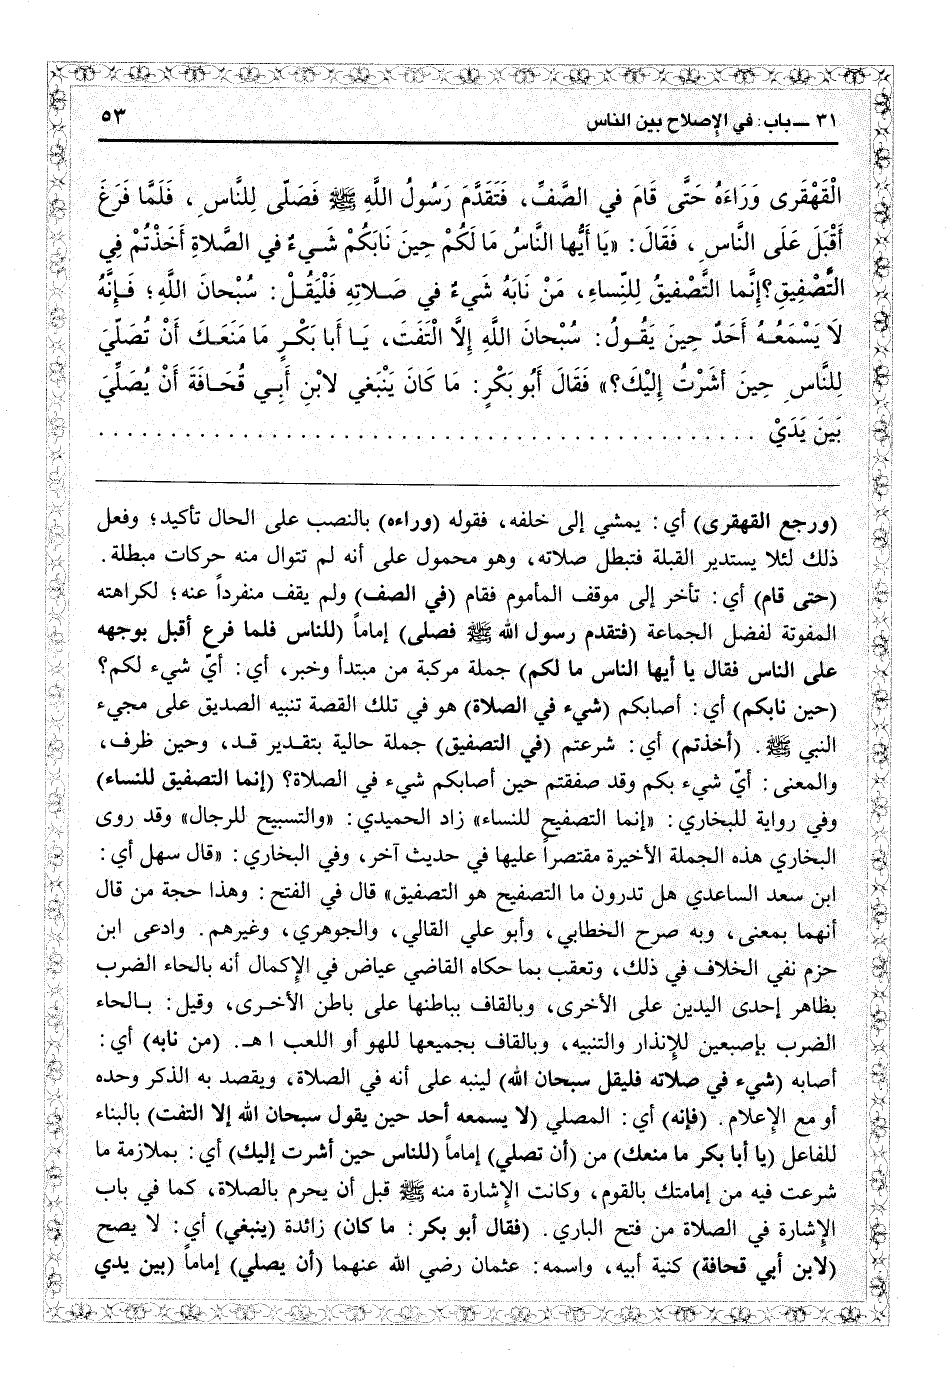 ٣١ ــ باب: في الإصلاح بين الناس
٥٣
الْقَهْقَرى وَرَاءَهُ حَتَّى قَامَ في الصَّفِّ، فَتَقَدَّمَ رَسُولُ اللَّهِ ﷺ فَصَلّى لِلنَّاسِ، فَلَمَّا فَرَغَ
أَقْبَلَ عَلَى النَّاسِ، فَقَالَ: «يَا أَيُّها النَّاسُ مَا لَكُمْ حِينَ نَابَكُمْ شَيءٌ في الصَّلاةِ أَخَذْتُمْ فِي
التَّصْفِيقِ؟ إِنَّما التَّصْفيقُ لِلنِّساءِ، مَنْ نَابَهُ شَيءٌ في صَلاتِهِ فَلْيَقُلْ: سُبْحانَ اللَّهِ؛ فَإِنَّهُ
لَا يَسْمَعُهُ أَحَدٌ حِينَ يَقُولُ: سُبْحَانَ اللَّهِ إِلَّا الْتَفَتَ، يَا أَبا بَكْرٍ مَا مَنَعَكَ أَنْ تُصَلّيَ
لِلنَّاسِ حِينَ أَشَرْتُ إِلَيْكَ؟» فَقَالَ أَبُو بَكْرٍ: مَا كَانَ يَنْبَغي لابْنِ أَبِي قُحَافَةَ أَنْ يُصَلِّيَ
بَينَ يَدَيْ ................................................
(ورجع القهقرى) أي: يمشي إلى خلفه، فقوله (وراءه) بالنصب على الحال تأكيد؛ وفعل
ذلك لئلا يستدير القبلة فتبطل صلاته، وهو محمول على أنه لم تتوال منه حركات مبطلة.
(حتى قام) أي: تأخر إلى موقف المأموم فقام (في الصف) ولم يقف منفرداً عنه؛ لكراهته
المفوتة لفضل الجماعة (فتقدم رسول الله ﷺ فصلى) إماماً (للناس فلما فرغ أقبل بوجهه
على الناس فقال يا أيها الناس ما لكم) جملة مركبة من مبتدأ وخبر، أي: أيّ شيء لكم؟
(حين نابكم) أي: أصابكم (شيء في الصلاة) هو في تلك القصة تنبيه الصديق على مجيء
النبي ﷺ. (أخذتم) أي: شرعتم (في التصفيق) جملة حالية بتقدير قد، وحين ظرف،
والمعنى: أيّ شيء بكم وقد صفقتم حين أصابكم شيء في الصلاة؟ (إنما التصفيق للنساء)
وفي رواية للبخاري: «إنما التصفيح للنساء» زاد الحميدي: «والتسبيح للرجال» وقد روى
البخاري هذه الجملة الأخيرة مقتصراً عليها في حديث آخر، وفي البخاري: «قال سهل أي:
ابن سعد الساعدي هل تدرون ما التصفيح هو التصفيق» قال في الفتح: وهذا حجة من قال
أنهما بمعنى، وبه صرح الخطابي، وأبو علي القالي، والجوهري، وغيرهم. وادعى ابن
حزم نفي الخلاف في ذلك، وتعقب بما حكاه القاضي عياض في الإكمال أنه بالحاء الضرب
بظاهر إحدى اليدين على الأخرى، وبالقاف بباطنها على باطن الأخرى، وقيل: بالحاء
الضرب بإصبعين للإنذار والتنبيه، وبالقاف بجميعها للهو أو اللعب ا هـ. (من نابه) أي:
أصابه (شيء في صلاته فليقل سبحان الله) لينبه على أنه في الصلاة، ويقصد به الذكر وحده
أو مع الإعلام. (فإنه) أي: المصلي (لا يسمعه أحد حين يقول سبحان الله إلا التفت) بالبناء
للفاعل (يا أبا بكر ما منعك) من (أن تصلي) إماماً (للناس حين أشرت إليك) أي: بملازمة ما
شرعت فيه من إمامتك بالقوم، وكانت الإشارة منه ﷺ قبل أن يحرم بالصلاة، كما في باب
الإشارة في الصلاة من فتح الباري. (فقال أبو بكر: ما كان) زائدة (ينبغي) أي: لا يصح
(لابن أبي قحافة) كنية أبيه، واسمه: عثمان رضي الله عنهما (أن يصلي) إماماً (بين يدي